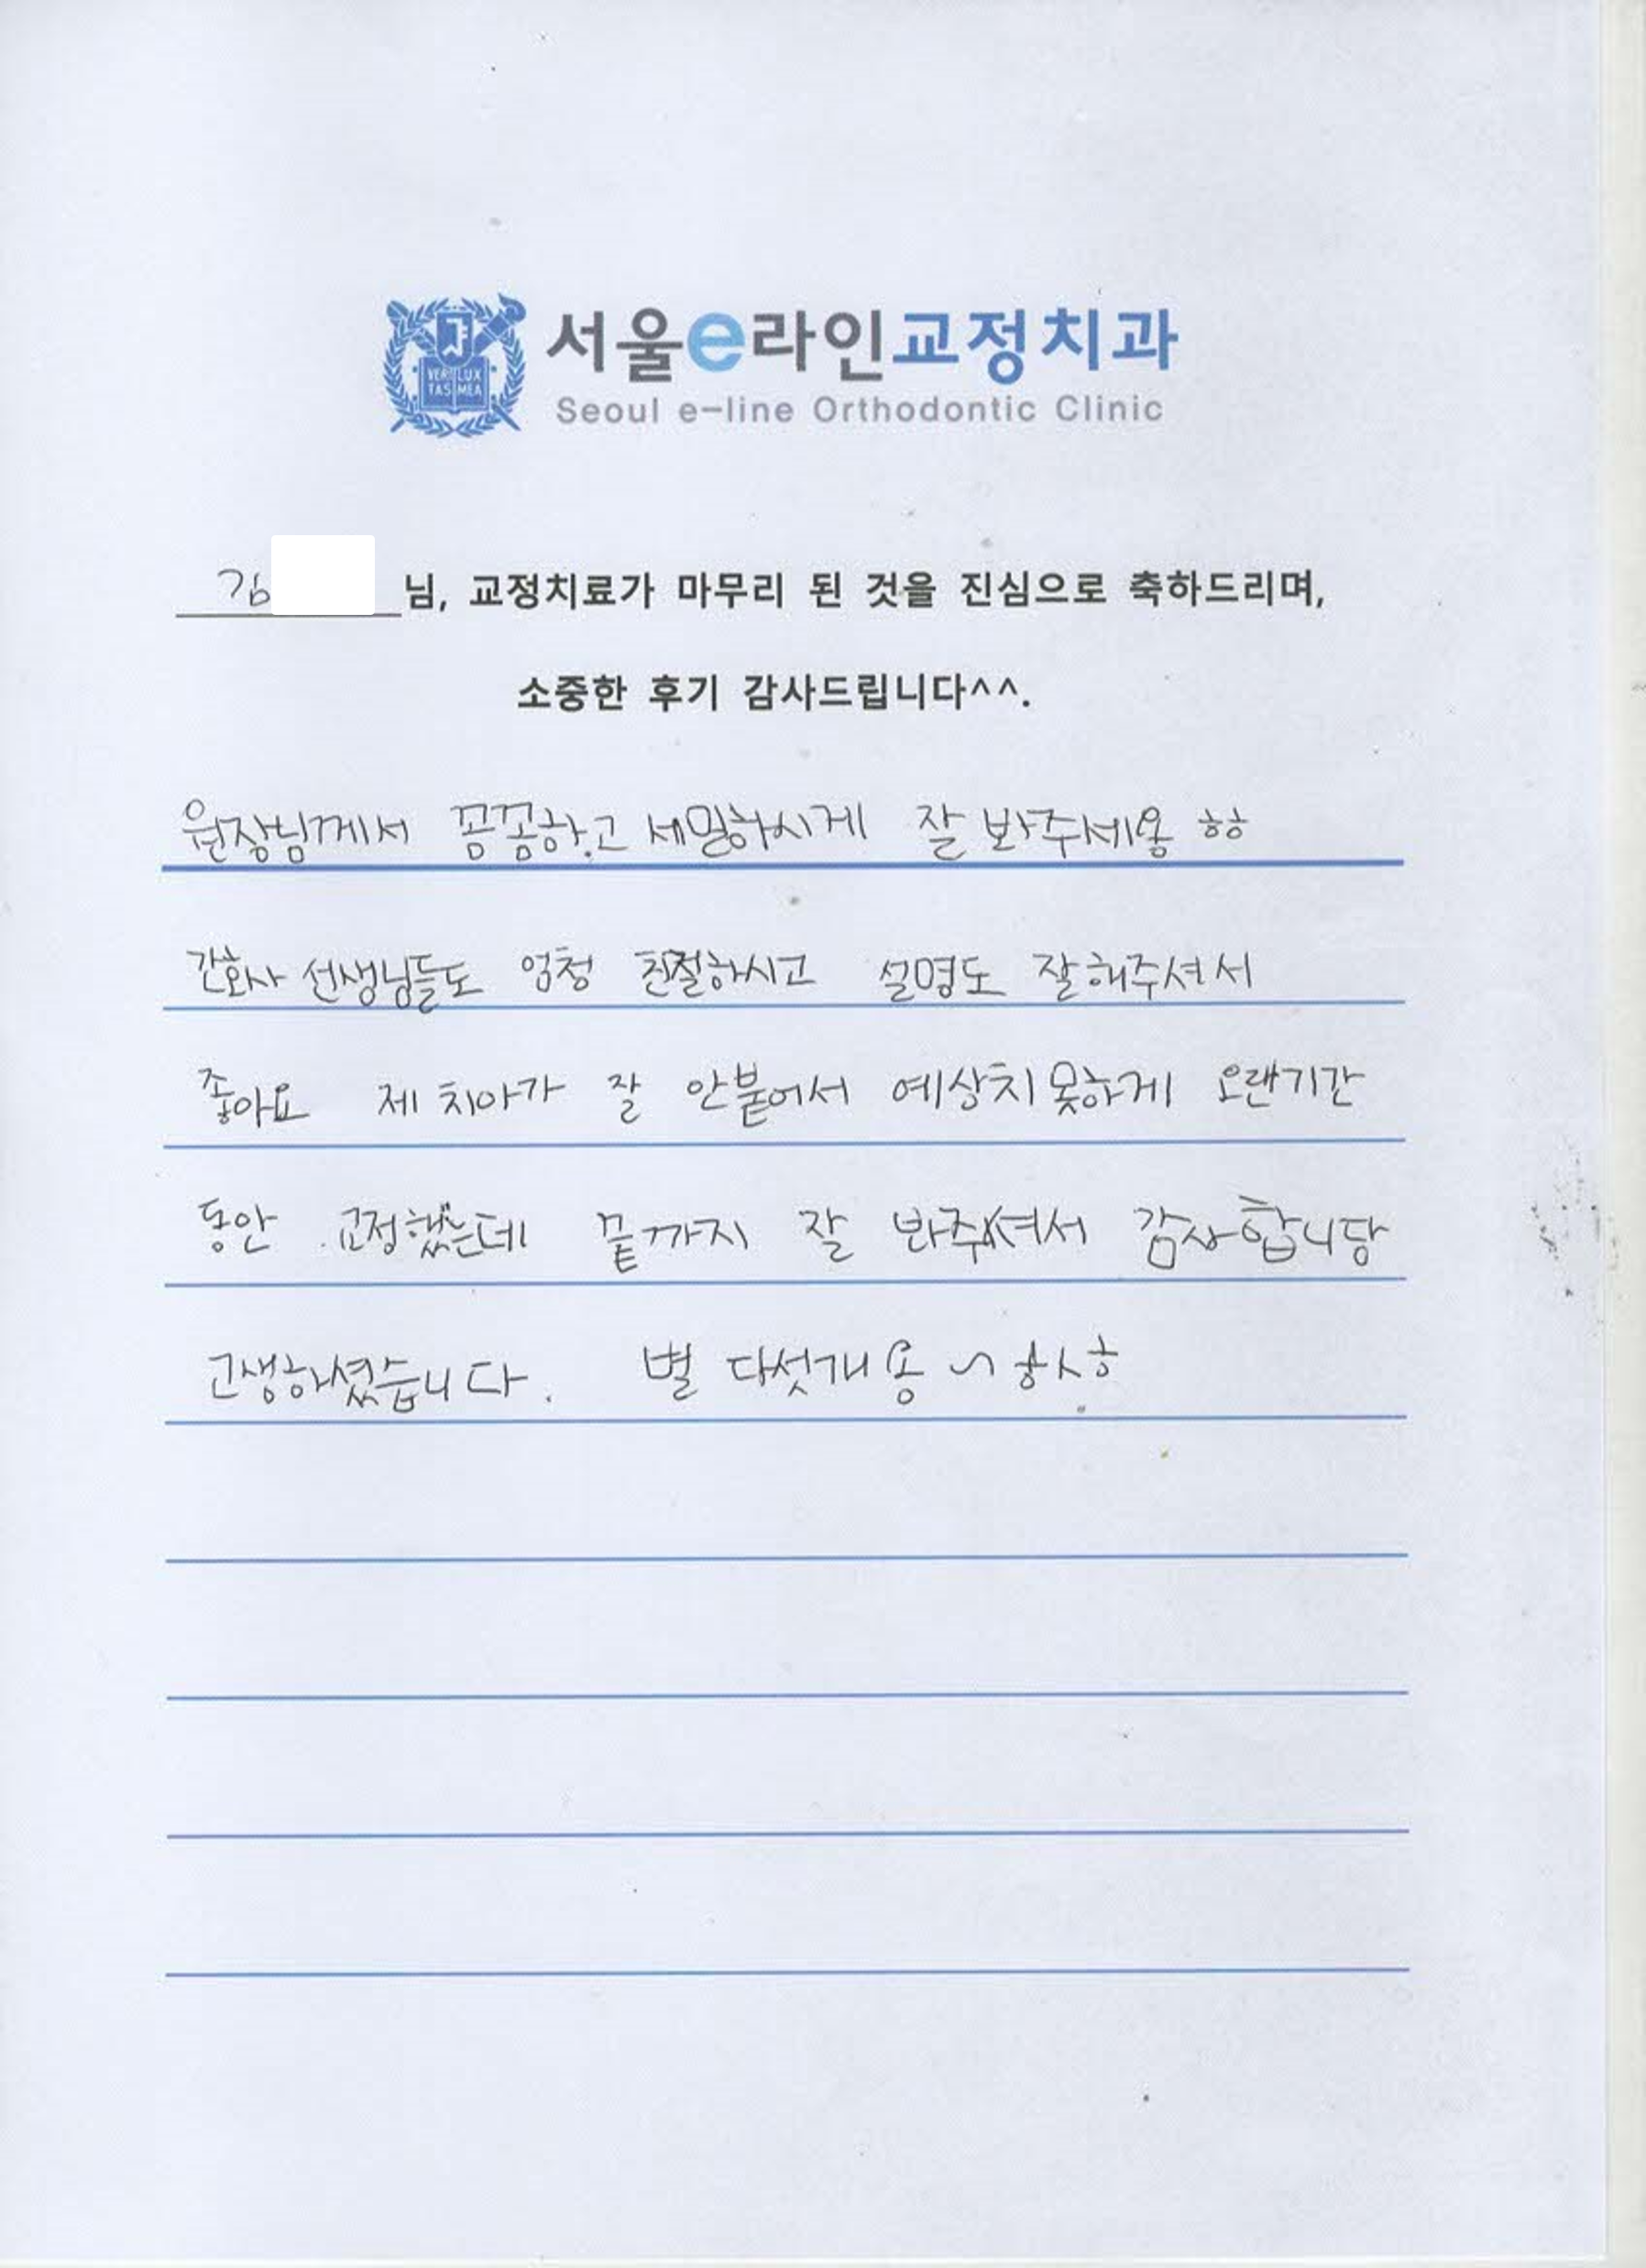 서울e라인교정치과
Seoul e-line Orthodontic Clinic
VERI LUX
TAS MEA
김 님, 교정치료가 마무리 된 것을 진심으로 축하드리며,
소중한 후기 감사드립니다^^.
원장님께서 꼼꼼하고 세밀하시게 잘 봐주세용 ㅎㅎ
간호사 선생님들도 엄청 친절하시고 설명도 잘해주셔서
좋아요 제 치아가 잘 안붙어서 예상치못하게 오랜기간
동안 교정했는데 끝까지 잘 봐주셔서 감사합니당
고생하셨습니다. 별 다섯개용~